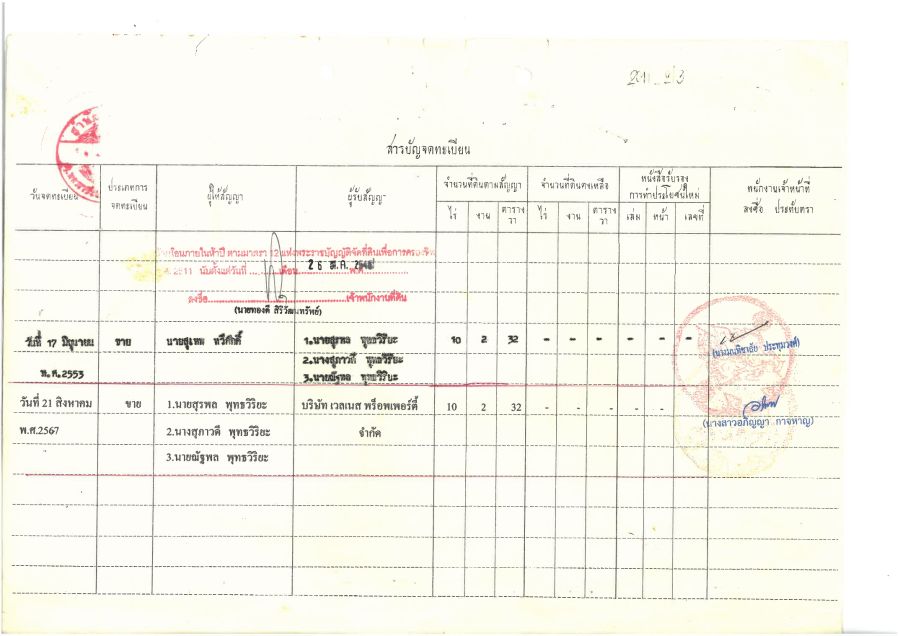 สารบัญจดทะเบียน
วันจดทะเบียน ประเภทการจดทะเบียน ผู้ให้สัญญา ผู้รับสัญญา จำนวนที่ดินตามสัญญา จำนวนที่ดินคงเหลือ หนังสือรับรองการทำประโยชน์ใหม่ พนักงานเจ้าหน้าที่ ลงชื่อ ประทับตรา
ไร่ งาน ตารางวา ไร่ งาน ตารางวา เล่ม หน้า เลขที่
โอนภายในห้าปี ตามมาตรา 12 แห่งพระราชบัญญัติจัดที่ดินเพื่อการครองชีพ
2511 นับตั้งแต่วันที่ ........... เดือน 26 พ.ศ.
ลงชื่อ....................เจ้าพนักงานที่ดิน
(นายทองดี สิริวัฒนทรัพย์)
วันที่ 17 มิถุนายน ขาย นายสุเทพ ทวีศักดิ์ 1.นายสุรพล พุทธวิริยะ 10 2 32 - - - - - -
2.นางสุภาวดี พุทธวิริยะ
พ.ศ.2553 3.นายณัฐพล พุทธวิริยะ
วันที่ 21 สิงหาคม ขาย 1.นายสุรพล พุทธวิริยะ บริษัท เวลเนส พร็อพเพอร์ตี้ 10 2 32 - - - - - -
(นางสาวอภิญญา กาจหาญ)
พ.ศ.2567 2.นางสุภาวดี พุทธวิริยะ จำกัด
3.นายณัฐพล พุทธวิริยะ